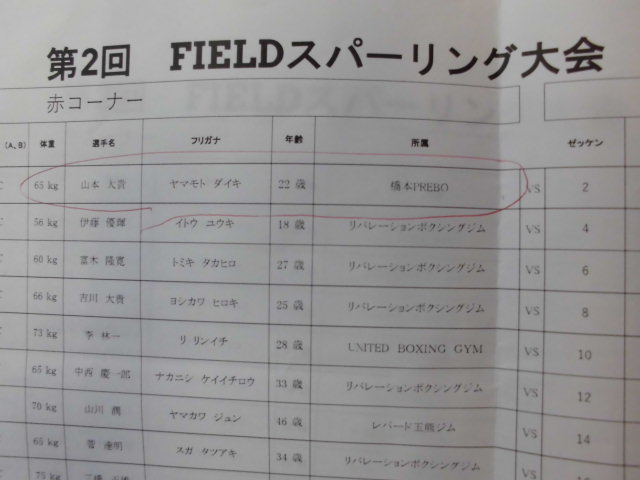 第2回 FIELDスパーリング大会
赤コーナー
(A、B) 体重 選手名 フリガナ 年齢 所属 ゼッケン
C 65 kg 山本 大貴 ヤマモト ダイキ 22 歳 橋本PREBO VS 2
56 kg 伊藤 優輝 イトウ ユウキ 18 歳 リバレーションボクシングジム VS 4
60 kg 富木 隆寛 トミキ タカヒロ 27 歳 リバレーションボクシングジム VS 6
66 kg 吉川 大貴 ヨシカワ ヒロキ 25 歳 リバレーションボクシングジム VS 8
73 kg 李 林一 リ リンイチ 28 歳 UNITED BOXING GYM VS 10
65 kg 中西 慶一郎 ナカニシ ケイイチロウ 33 歳 リバレーションボクシングジム VS 12
70 kg 山川 潤 ヤマカワ ジュン 46 歳 レパード玉熊ジム VS 14
65 kg 菅 達明 スガ タツアキ 34 歳 リバレーションボクシングジム VS
75 kg